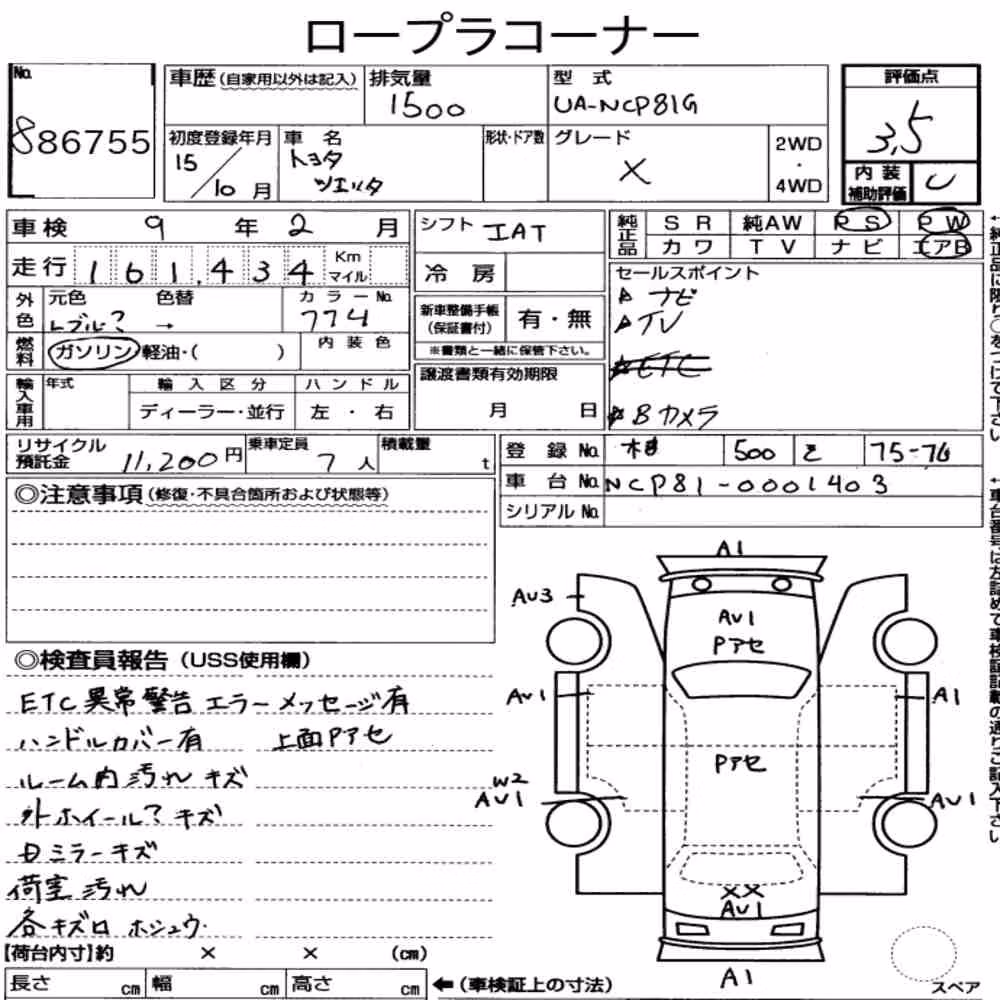 ロープラコーナー
No. 886755
車歴 (自家用以外は記入)
排気量 1500
型式 UA-NCP81G
評価点 3,5
初度登録年月 15/10月
車名 トヨタ
形状・ドア数
グレード X
2WD・4WD
内装補助評価
車検 9年 2月
シフト IAT
純正品 SR 純AW PS PW
カワ TV ナビ エアB
走行 161,434 Km マイル
冷房
セールスポイント
ナビ
TV
ETC
Bカメラ
外色 元色 色替 カラーNo.
→ 774
新車整備手帳(保証書付) 有・無
※書類と一緒に保管下さい。
燃料 ガソリン・軽油・( ) 内装色
輸入車用 年式 輸入区分 ハンドル
ディーラー・並行 左・右
譲渡書類有効期限
月 日
リサイクル預託金 11,200円
乗車定員 7人
積載量 t
登録No. 500 75-76
車台No. NCP81-0001403
シリアルNo.
◎注意事項(修復・不具合箇所および状態等)
◎検査員報告(USS使用欄)
ETC異常警告エラーメッセージ有
ハンドルカバー有 上面Pアセ
ルーム内汚れ キズ
外ホイール? キズ
日ミラーキズ
荷室汚れ
各キズロ ホシュウ
【荷台内寸】約 × × (cm)
長さ cm 幅 cm 高さ cm ←(車検証上の寸法)
A1
AU3
AU1
Pアセ
AU1
A1
Pアセ
W2
AU1
AU1
XX
AU1
A1
スペア